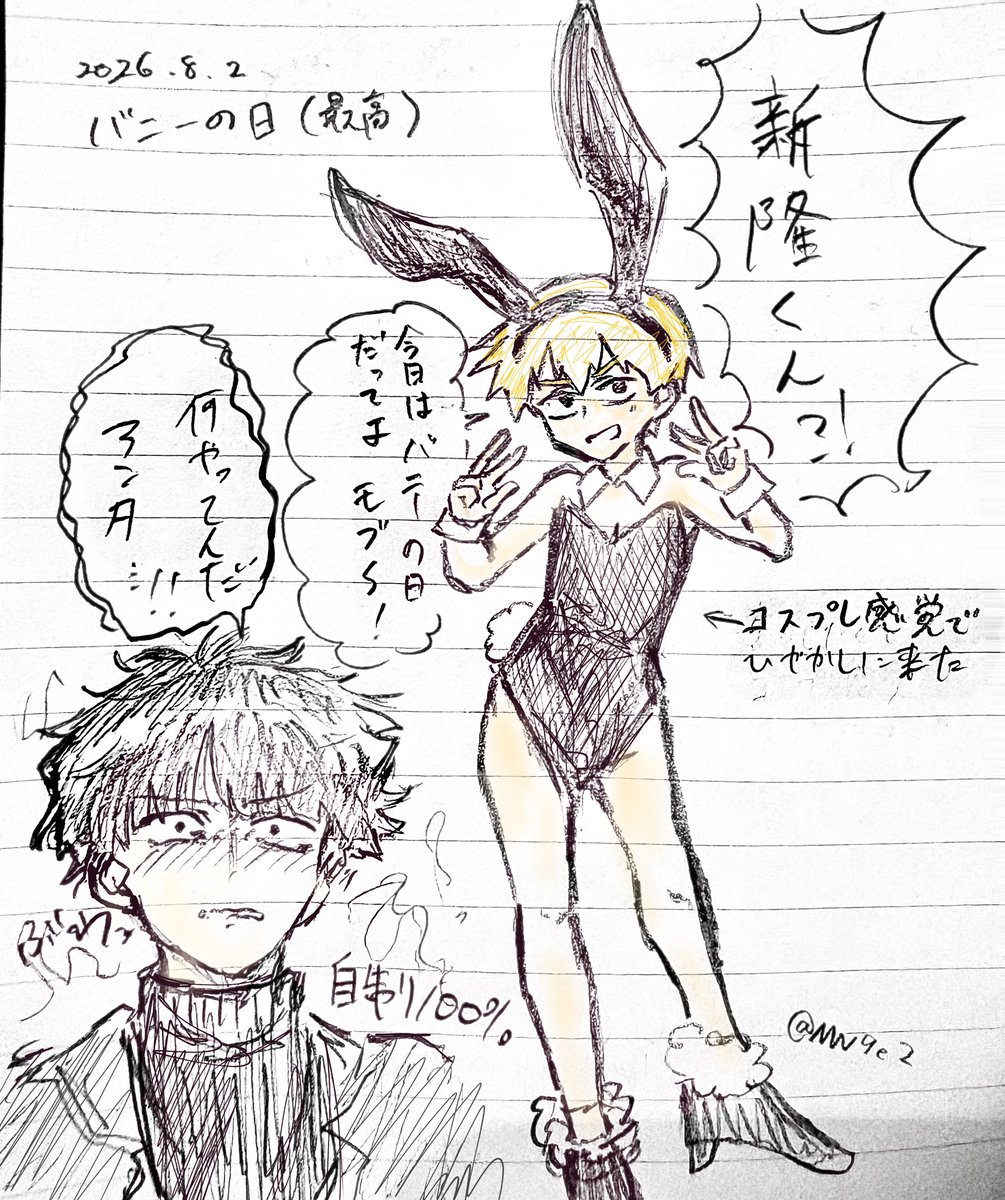 2026.8.2
バニーの日(最高)
新
隆
くんっ!
今日はバニーの日
だってよ モブ〜!
何やってんだ
アンタ…!!
←コスプレ感覚で
ひやかしに来た
自制100%
@MW9e2